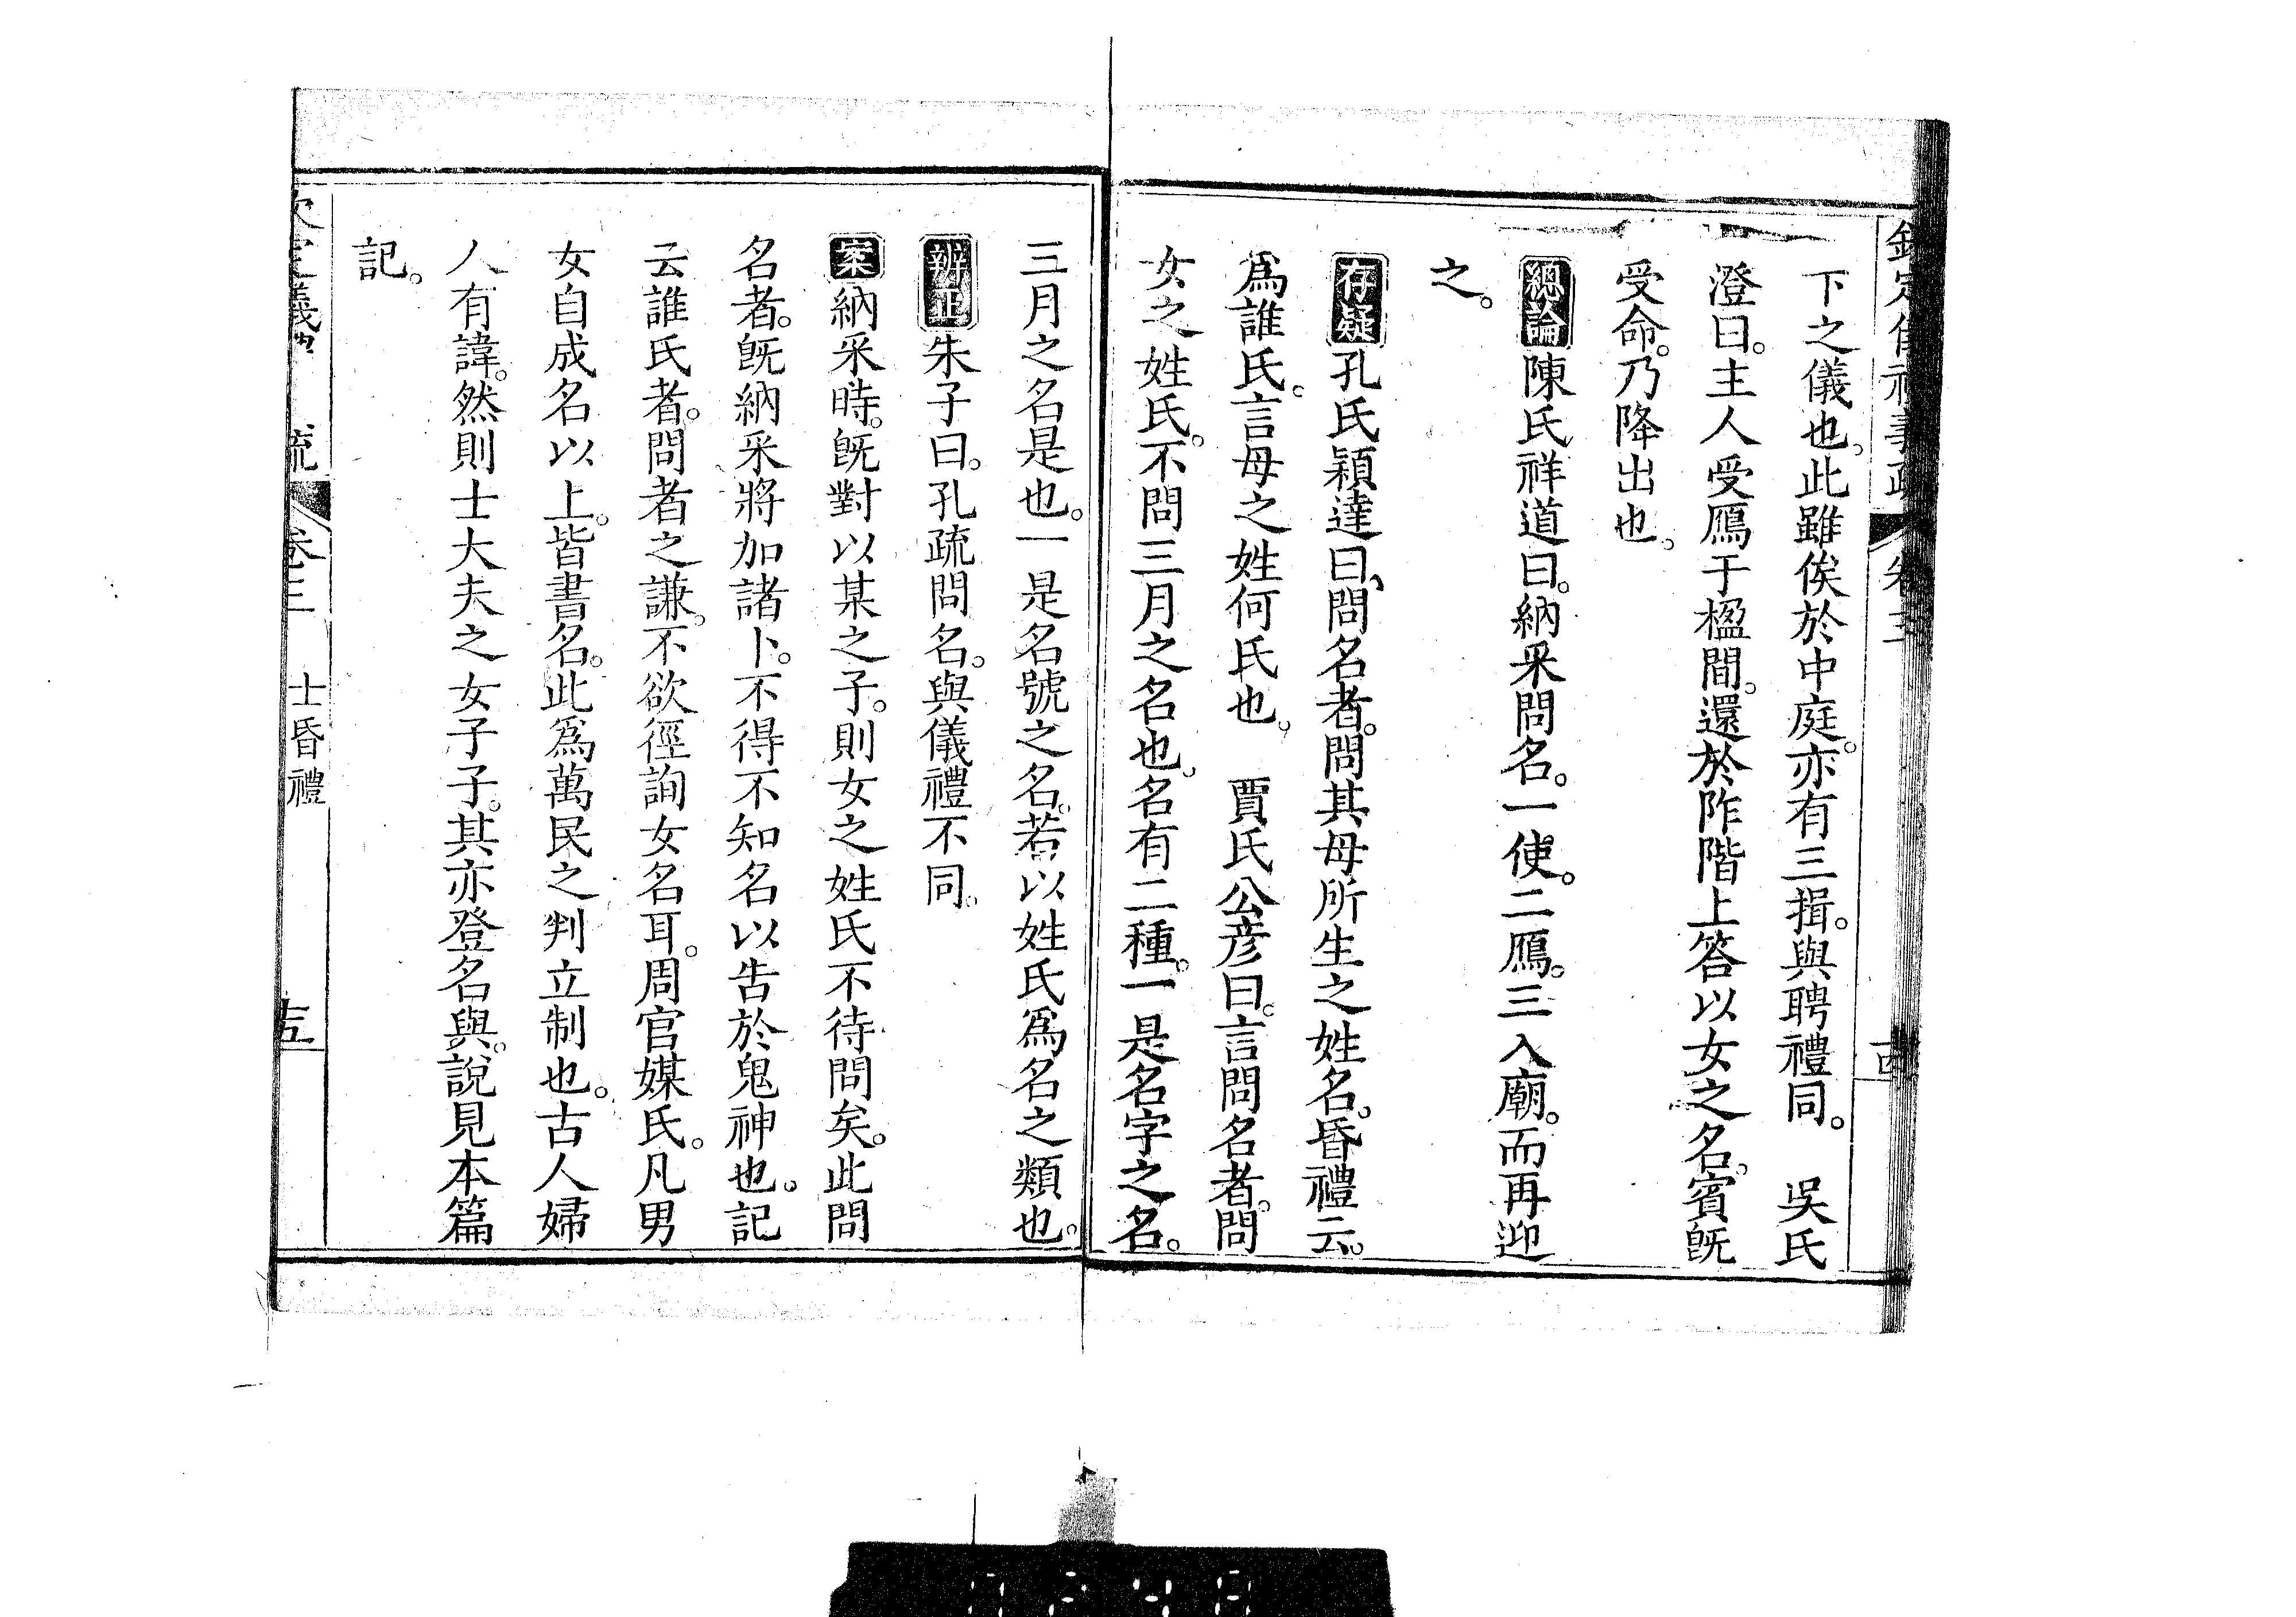 下之儀也。此雖俟於中庭。亦有三揖。與聘禮同。　吳氏
澄曰。主人受鴈于楹間。還於阼階上答以女之名。賓旣
受命。乃降出也。
總論陳氏祥道曰。納采問名。一使。二鴈。三入廟。而再迎
之。
存疑孔氏穎達曰、問名者。問其母所生之姓名。昏禮云。
爲誰氏。言母之姓何氏也。　賈氏公彦曰。言問名者。問
女之姓氏。不問三月之名也。名有二種。一是名字之名。
三月之名是也。一是名號之名。若以姓氏爲名之類也。
辨正朱子曰。孔疏問名。與儀禮不同。
案納采時。旣對以某之子。則女之姓氏不待問矣。此問
名者。旣納采將加諸卜。不得不知名以告於鬼神也。記
云誰氏者。問者之謙。不欲徑詢女名耳。周官媒氏。凡男
女自成名以上。皆書名。此爲萬民之判立制也。古人婦
人有諱。然則士大夫之女子子。其亦登名與。說見本篇
記。
卷三　士昏禮